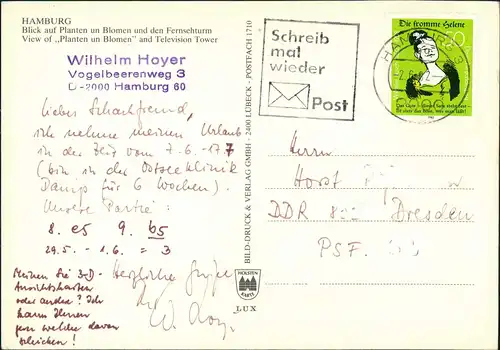 HAMBURG
Blick auf Planten un Blomen und den Fernsehturm
View of „Planten un Blomen" and Television Tower
Wilhelm Hoyer
Vogelbeerenweg 3
D-2000 Hamburg 60
Schreib
mal
wieder
Post
HAMBURG
Die fromme Helene
Das Gute – dieser Satz steht fest –
Ist stets das Böse, was man läßt!
Lieber Schachfreund,
ich nehme meinen Urlaub
in der Zeit vom 7.6.-17.7
(bin in der Ostseeklinik
Damp für 6 Wochen).
Unsere Partie:
8. e5 9. b5
29.5. - 1.6. = 3
Meinen Sie 3-D-
Ansichtskarten
oder andere? Ich
kann Ihnen
welche davon
schicken!
Herzliche Grüße
Ihr
W. Hoyer
BILD-DRUCK & VERLAG GMBH - 2400 LÜBECK - POSTFACH 1710
HOLSTEN
KARTE
LUX
Herrn
Horst
DDR Dresden
PSF.